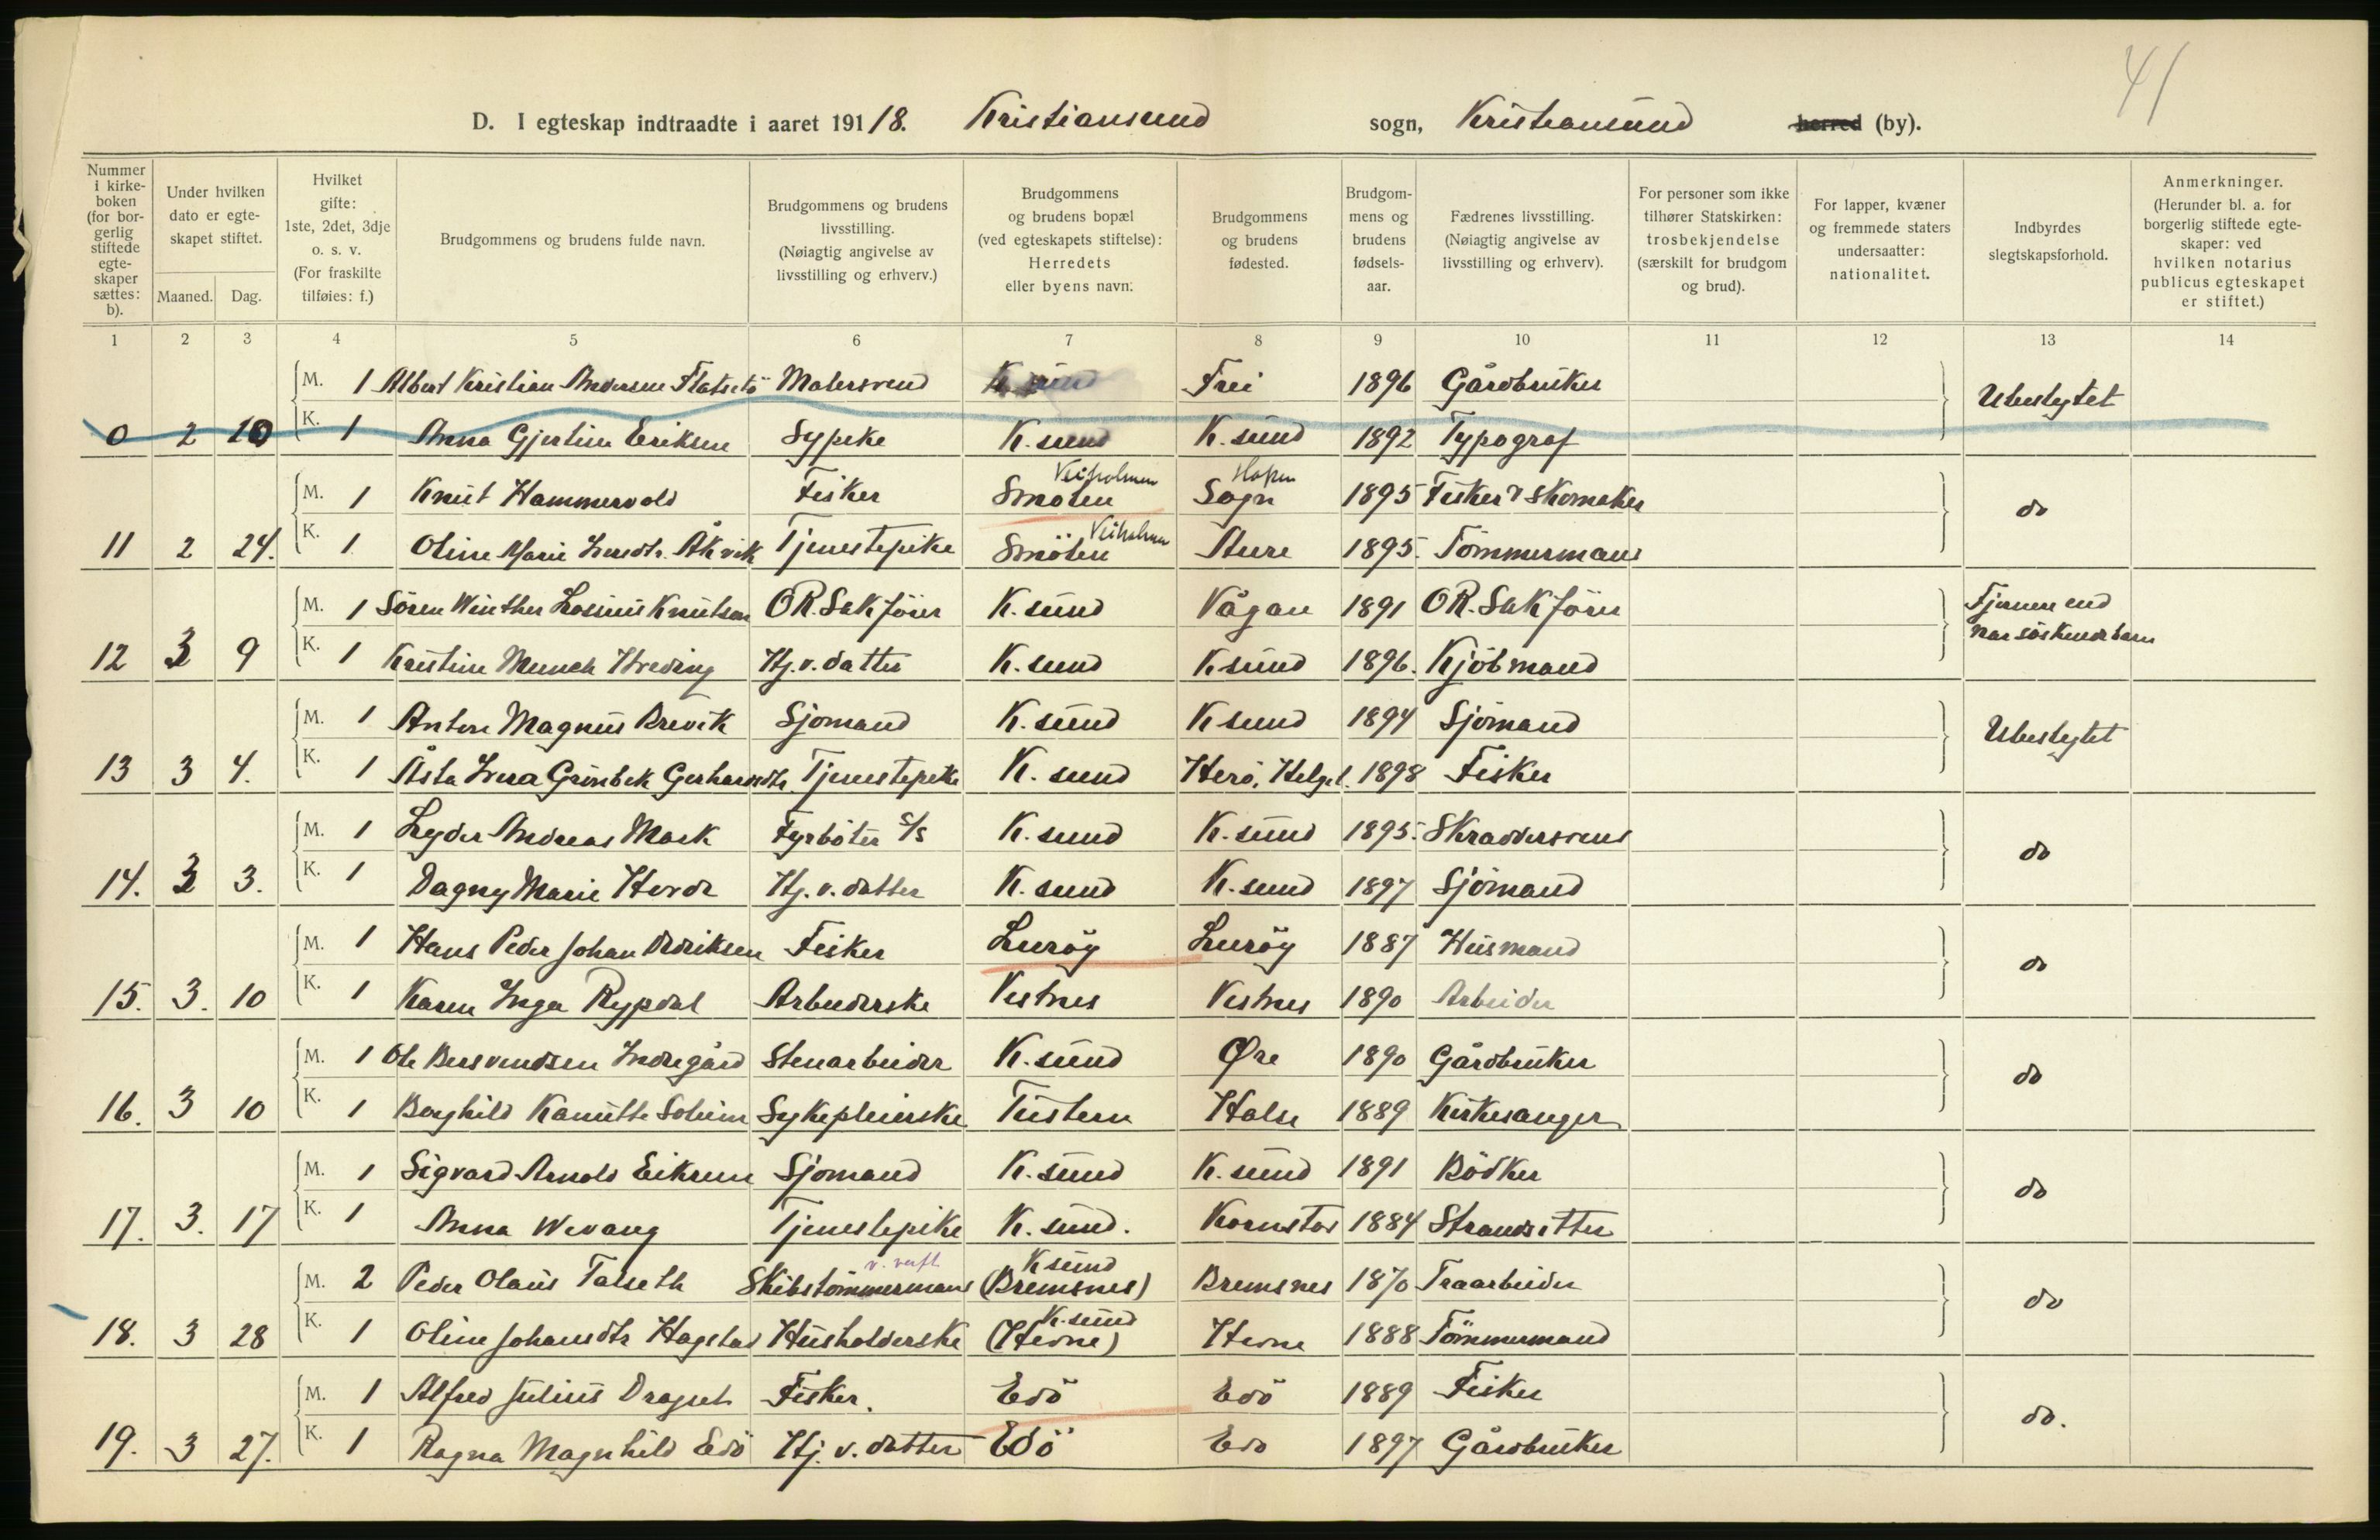 41
D. I egteskap indtraadte i aaret 191 18. Kristiansund sogn, Kristiansund herred (by).
Nummer i kirkeboken (for borgerlig stiftede egteskaper sættes: b).
Under hvilken dato er egteskapet stiftet.
Maaned. Dag.
Hvilket gifte: 1ste, 2det, 3dje o. s. v. (For fraskilte tilføies: f.)
Brudgommens og brudens fulde navn.
Brudgommens og brudens livsstilling. (Nøiagtig angivelse av livsstilling og erhverv.)
Brudgommens og brudens bopæl (ved egteskapets stiftelse): Herredets eller byens navn.
Brudgommens og brudens fødested.
Brudgommens og brudens fødselsaar.
Fædrenes livsstilling. (Nøiagtig angivelse av livsstilling og erhverv).
For personer som ikke tilhører Statskirken: trosbekjendelse (særskilt for brudgom og brud).
For lapper, kvæner og fremmede staters undersaatter: nationalitet.
Indbyrdes slegtskapsforhold.
Anmerkninger. (Herunder bl. a. for borgerlig stiftede egteskaper: ved hvilken notarius publicus egteskapet er stiftet.)
1 2 3 4 5 6 7 8 9 10 11 12 13 14
M. 1 Albert Kristian Andersen Flatsetö Malersvend K.sund Frei 1896 Gårdbruker Ubeslegtet
0 2 10 K. 1 Anna Gjertine Eriksen Sypike K.sund K.sund 1892 Typograf
M. 1 Knut Hammervold Fisker Smölen Veiholmen Sogn Hopen 1895 Fisker & Skomaker do
11 2 24. K. 1 Oline Marie Akvik Tjenestepike Smölen Veiholmen Aure 1895. Tömmermand
M. 1 Sören Winther Knutson OR.Sakförer K.sund Vågan 1891 OR.Sakförer Fjernere end nær söskendebarn
12 3 9 K. 1 Kristine Munch Hj.v.datter K.sund K.sund 1896. Kjöbmand
M. 1 Anton Magnus Brevik Sjömand K.sund K.sund 1894 Sjömand Ubeslegtet
13 3 4. K. 1 Åsta Grönbek Gerhardsdtr. Tjenestepike K.sund Herö, Helgel. 1898 Fisker
M. 1 Lyder Andreas Mork Fyrböter S/S K.sund K.sund 1895. Skræddersvend do
14. 3 3. K. 1 Dagny Marie Hj.v.datter K.sund K.sund 1897 Sjömand
M. 1 Hans Peder Johan Fisker Luröy Luröy 1887 Husmand do
15. 3. 10 K. 1 Karen Inga Rypdal Arbeiderske Vestnes Vestnes 1890 Arbeider
M. 1 Ole Indregård Stenarbeider K.sund Øre 1890 Gårdbruker do
16. 3 10 K. 1 Borghild Kanutte Solem Sykepleierske Tustern Halse 1889 Kirkesanger
M. 1 Sigvard Arnold Eikrem Sjömand K.sund K.sund 1891 Bödker do
17. 3. 17 K. 1 Anna Wevang Tjenestepike K.sund. Kornstad 1884 Strandsitter
M. 2 Peder Olaus Talseth Skibstömmermand v. verft K.sund (Bremsnes) Bremsnes 1870 Træarbeider do
18. 3 28 K. 1 Oline Johansdtr Hagstad Husholderske K.sund (Hevne) Hevne 1888 Tömmermand
M. 1 Alfred Julius Draget Fisker. Edö Edö 1889 Fisker do.
19. 3 27. K. 1 Ragna Magnhild Edö Hj.v.datter Edö Edö 1897 Gårdbruker